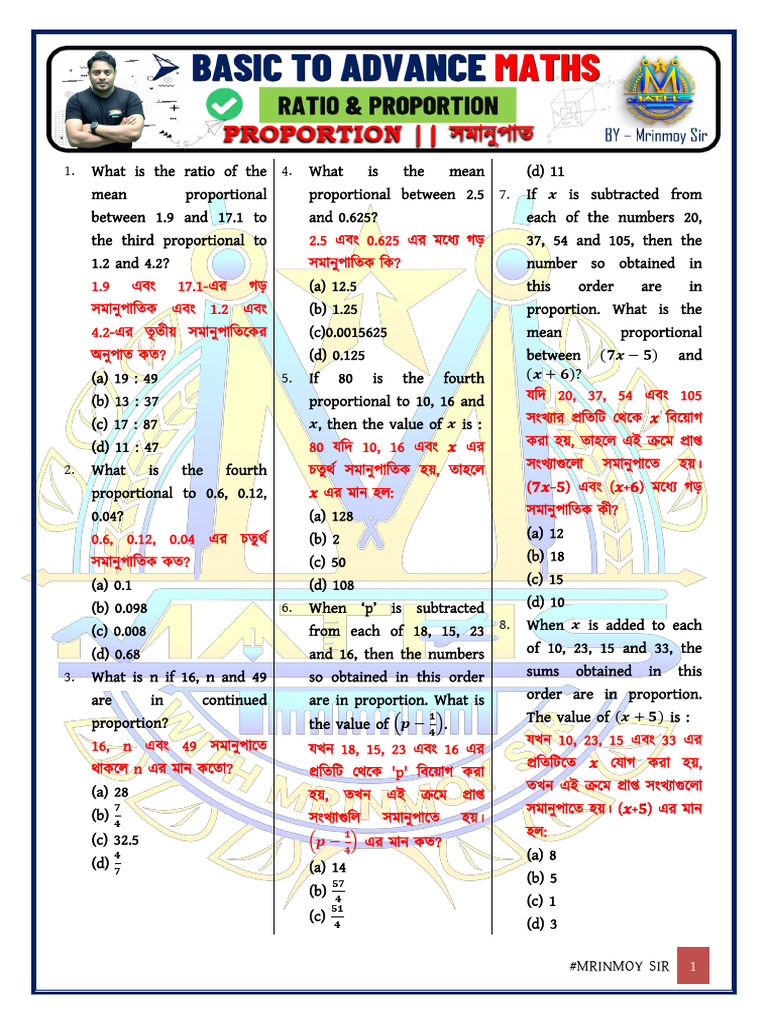 BASIC TO ADVANCE MATHS
RATIO & PROPORTION
PROPORTION || সমানুপাত
MATHS
BY – Mrinmoy Sir
1. What is the ratio of the
mean proportional
between 1.9 and 17.1 to
the third proportional to
1.2 and 4.2?
1.9 এবং 17.1-এর গড়
সমানুপাতিক এবং 1.2 এবং
4.2-এর তৃতীয় সমানুপাতিকের
অনুপাত কত?
(a) 19 : 49
(b) 13 : 37
(c) 17 : 87
(d) 11 : 47
2. What is the fourth
proportional to 0.6, 0.12,
0.04?
0.6, 0.12, 0.04 এর চতুর্থ
সমানুপাতিক কত?
(a) 0.1
(b) 0.098
(c) 0.008
(d) 0.68
3. What is n if 16, n and 49
are in continued
proportion?
16, n এবং 49 সমানুপাতে
থাকলে n এর মান কতো?
(a) 28
(b) 7/4
(c) 32.5
(d) 4/7
4. What is the mean
proportional between 2.5
and 0.625?
2.5 এবং 0.625 এর মধ্যে গড়
সমানুপাতিক কি?
(a) 12.5
(b) 1.25
(c)0.0015625
(d) 0.125
5. If 80 is the fourth
proportional to 10, 16 and
x, then the value of x is :
80 যদি 10, 16 এবং x এর
চতুর্থ সমানুপাতিক হয়, তাহলে
x এর মান হল:
(a) 128
(b) 2
(c) 50
(d) 108
6. When ‘p’ is subtracted
from each of 18, 15, 23
and 16, then the numbers
so obtained in this order
are in proportion. What is
the value of (p − 1/4).
যখন 18, 15, 23 এবং 16 এর
প্রতিটি থেকে 'p' বিয়োগ করা
হয়, তখন এই ক্রমে প্রাপ্ত
সংখ্যাগুলি সমানুপাতে হয়।
(p − 1/4) এর মান কত?
(a) 14
(b) 57/4
(c) 51/4
(d) 11
7. If x is subtracted from
each of the numbers 20,
37, 54 and 105, then the
number so obtained in
this order are in
proportion. What is the
mean proportional
between (7x − 5) and
(x + 6)?
যদি 20, 37, 54 এবং 105
সংখ্যার প্রতিটি থেকে x বিয়োগ
করা হয়, তাহলে এই ক্রমে প্রাপ্ত
সংখ্যাগুলো সমানুপাতে হয়।
(7x–5) এবং (x+6) মধ্যে গড়
সমানুপাতিক কী?
(a) 12
(b) 18
(c) 15
(d) 10
8. When x is added to each
of 10, 23, 15 and 33, the
sums obtained in this
order are in proportion.
The value of (x + 5) is :
যখন 10, 23, 15 এবং 33 এর
প্রতিটিতে x যোগ করা হয়,
তখন এই ক্রমে প্রাপ্ত সংখ্যাগুলো
সমানুপাতে হয়। (x+5) এর মান
হল:
(a) 8
(b) 5
(c) 1
(d) 3
MATHS
WITH MRINMOY SIR
#MRINMOY SIR 1